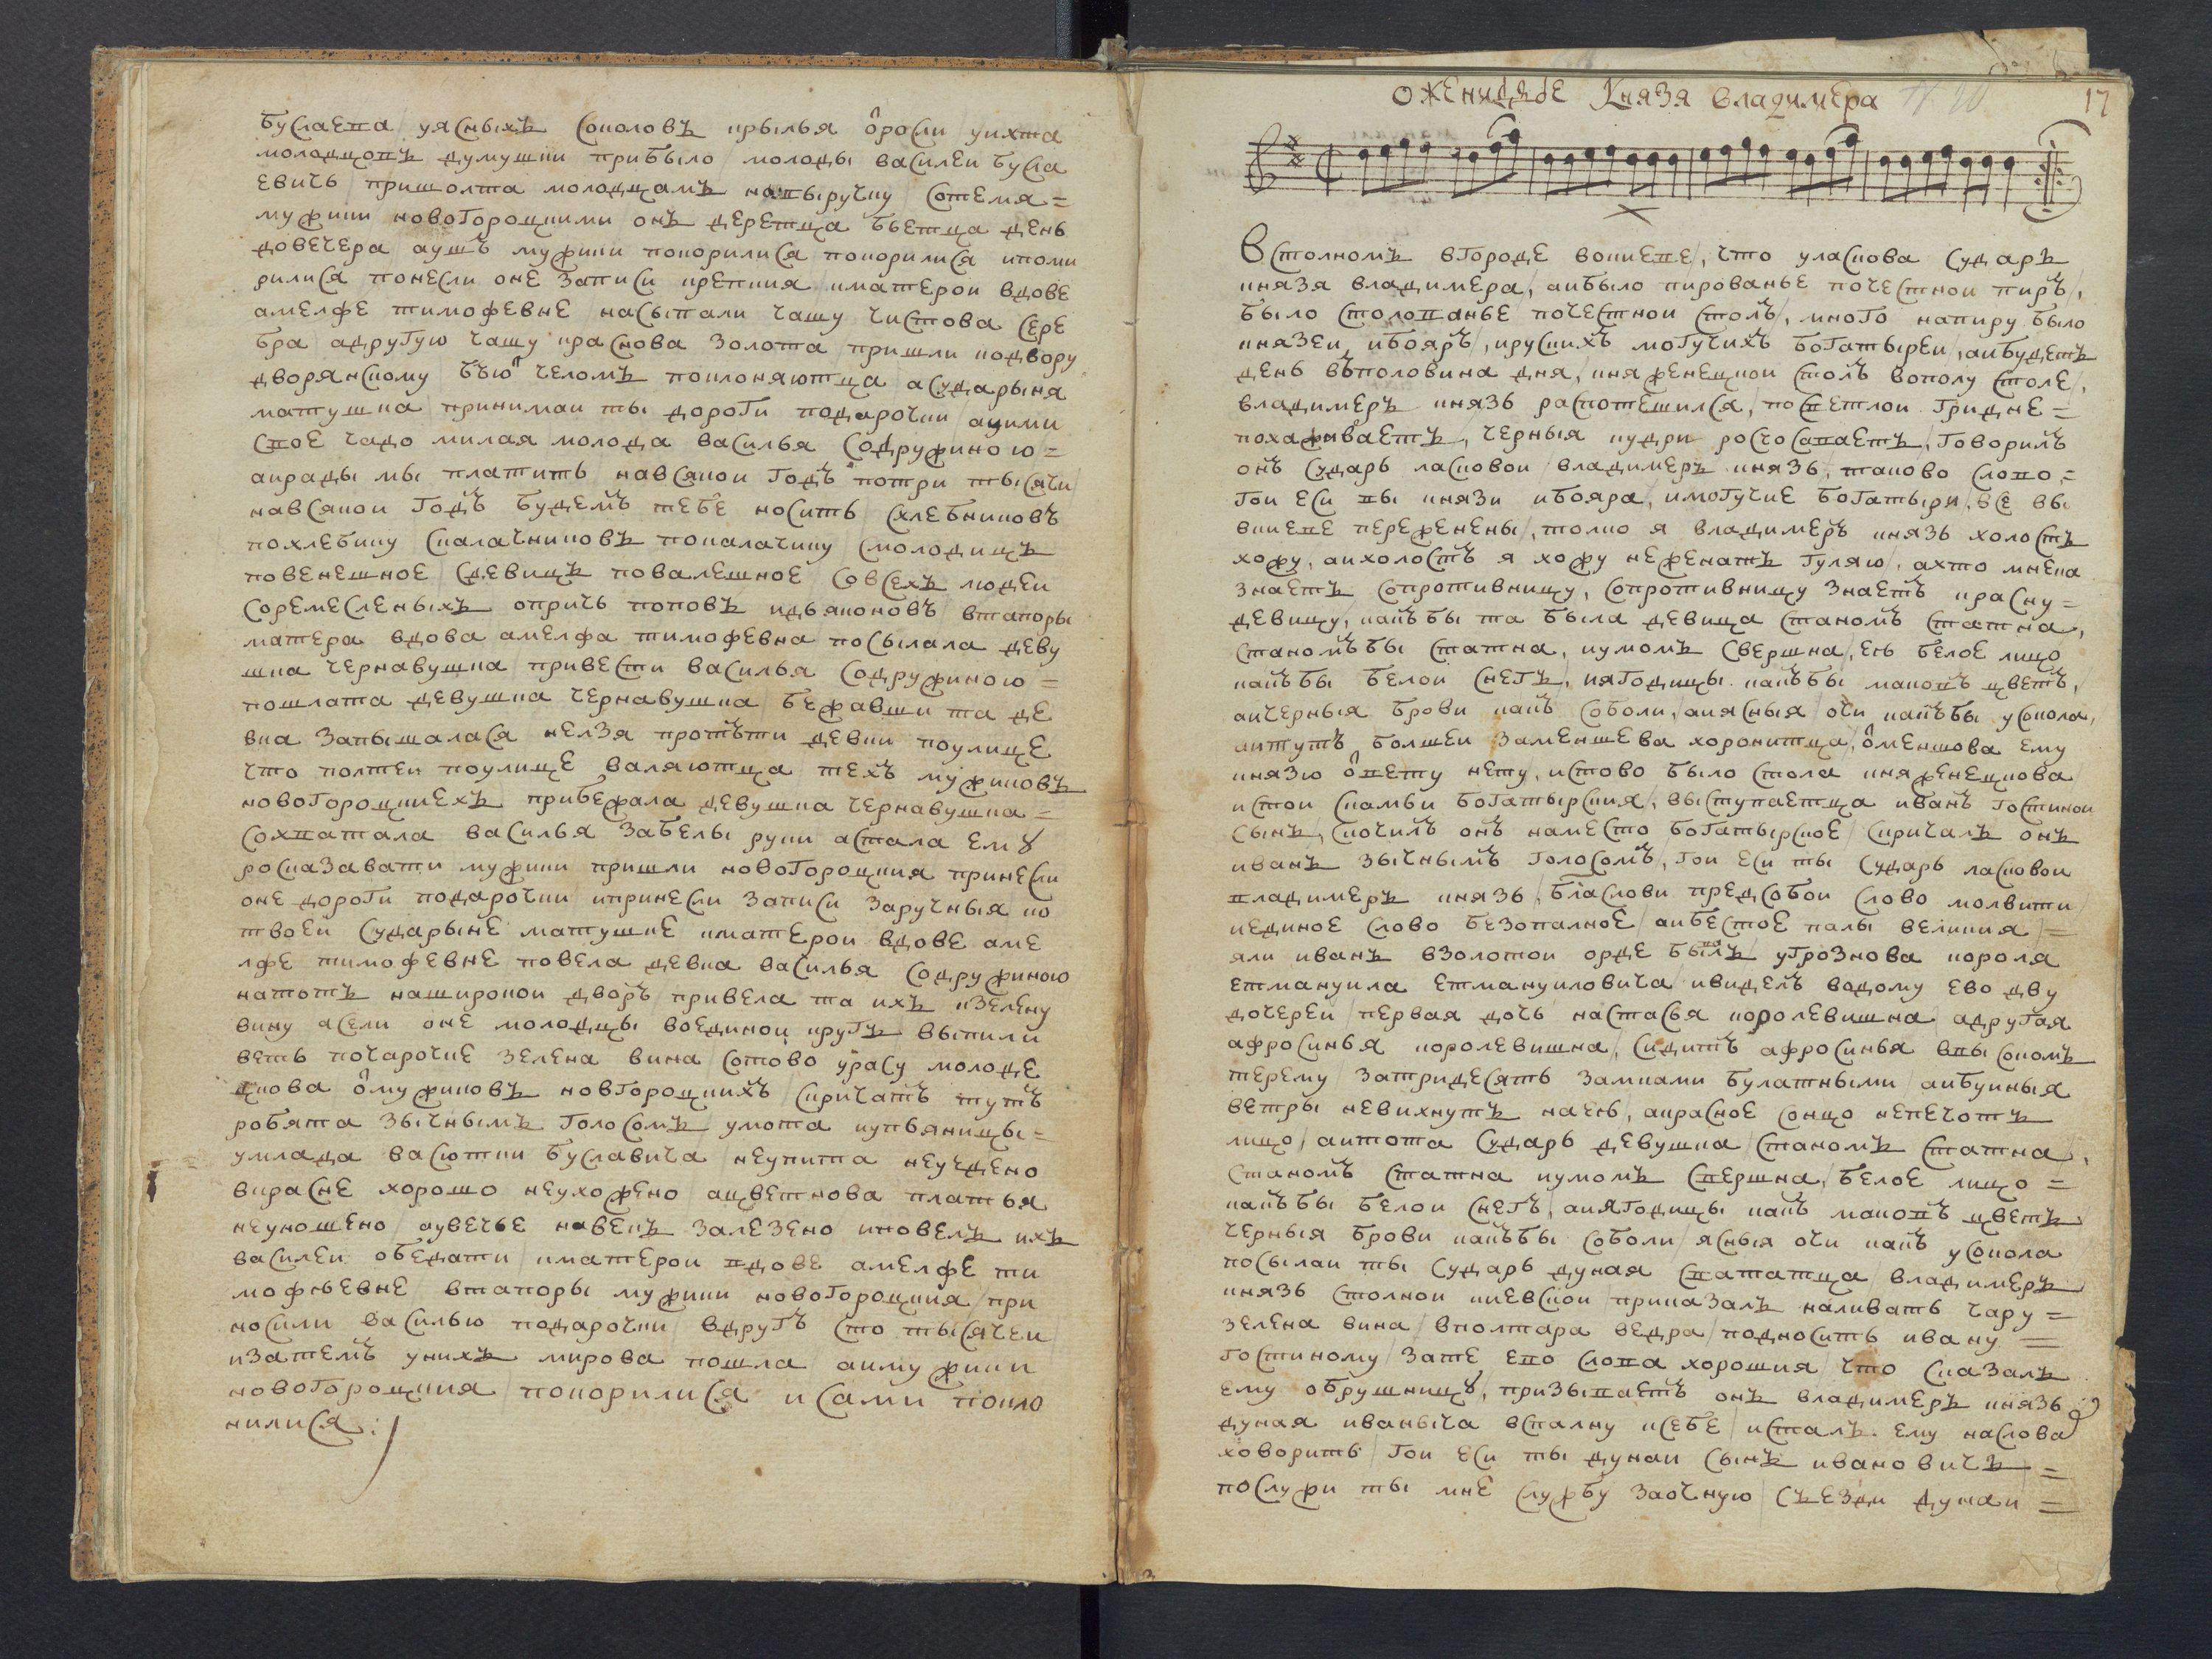 буслаева уясныхъ соколовъ крылья ѿросли уихта
молодцовъ думушки прибыло молоды василеи бусла
евичь пришолта молодцамъ навыручку стемя=
мужики новогороцкими онъ деретца бьетца день
довечера аушъ мужики покорилися покорилися ипоми
рилися понесли оне записи крепкия кматерои вдове
амелфе тимофевне насыпали чашу чистова сере
бра адругую чашу краснова золота пришли кодвору
дворянскому бъютъ челомъ поклоняютца асударыня
матушка принимаи ты дороги подарочки ауими
свое чадо милая молода василья содружиною=
аирады мы платить навсякои годъ потри тысячи
навсякои годъ будемъ тебе носить схлебниковъ
похлебику скалачниковъ покалачику смолодицъ
повенешное сдевицъ повалешное совсехъ людеи
соремесленыхъ опричь поповъ идьяконовъ втапоры
матера вдова амелфа тимофевна посылала деву
шка чернавушка привести василья содружиною=
пошлата девушка чернавушка бежавши та де
вка запышалася нелзя протъти девки поулице
что полтеи поулице валяютца техъ мужиковъ
новогороцкиехъ прибежала девушка чернавушка=
сохватала василья забелы руки астала ему
росказавати мужики пришли новогороцкия принесли
оне дороги подарочки ипринесли записи заручныя ко
твоеи сударыне матушке кматерои вдове аме
лфе тимофевне повела девка василья содружиною
натотъ нашироkои дворъ привела та ихъ кзелену
вину асели оне молодцы воединои кругъ выпили
веть почарочке зелена вина сотово урасу молоде
цкова ѿмужиковъ новгороцкихъ скричатъ тутъ
робята зычнымъ голосомъ умота иупьяницы=
умлада васютки буславича неупита неуедено
вкрасне хорошо неухожено ацветнова платья
неуношено аувечье навекъ залезено иповелъ ихъ
василеи обедати кматерои вдове амелфе ти
мофѣевне втапоры мужики новогороцкия при
носили василью подарочки вдругъ сто тысячеи
изатемъ унихъ мирова пошла аимужики
новогороцкия покорилися исами покло
нилися:
оженидъбе Князя владимера
17
Встолномъ вгороде вокиеве, что уласкова сударь
князя владимера, аибыло пированье почестнои пиръ,
было столованье почестнои столъ, много напиру было
князеи ибояръ, ирускихъ могучихъ богатыреи, аибудетъ
день въполовина дня, княженецкои столъ вополу столе,
владимеръ князь распотешился, посветлои гридне=
похаживаетъ, черныя кудри росчосаваетъ, говорилъ
онъ сударь ласковои владимеръ князь, таково слово,=
гои еси вы князи ибояра, имогучие богатыри, все вы
вкиеве переженены, толко я владимеръ князь холостъ
хожу, аихолостъ я хожу неженатъ гуляю, ахто мнека
знаетъ сопротивницу, сопротивницу знаетъ красну=
девицу, какъбы та была девица станомъ статна,
станомъбы статна, иумомъ свершна, ею белое лицо
какъбы белои снегъ, иягодицы какъбы маковъ цветъ,
аичерныя брови какъ соболи, аиясныя очи какъбы усокола,
аитутъ болшеи заменшева хоронитца, ѿменшова ему
князю ѿвету нету, истово было стола княженецкова
истои скамьи богатырския, выступаетца иванъ гостинои
сынъ, скочилъ онъ наместо богатырское скричалъ онъ
иванъ зычнымъ голосомъ, гои еси ты сударь ласковои
владимеръ князь, благослови предсобои слово молвити
иединое слово безопалное, аибестое палы великия=
яли иванъ взолотои орде бывалъ угрознова короля
етмануила етмануиловича ивиделъ вдому ево дву
дочереи первая дочь настасья королевишна адругая
афросинья королевишна, сидитъ афросинья ввысокомъ
терему затридесять замками булатными аибуиныя
ветры невихнутъ наею, аирасное сонцо непечотъ
лицо, аитота сударь девушка станомъ статна,
станомъ статна иумомъ свершна, белое лицо=
какъбы белои снегъ, аиягодицы какъ маковъ цветъ
черныя брови какъбы соболи ясныя очи какъ усокола
посылаи ты сударь дуная свататца владимеръ
князь столнои киевскои приказалъ наливать чару=
зелена вина вполтара ведра подносить ивану=
гостиному зате ево слова хорошия что сказалъ
ему обрушницу, призываетъ онъ владимеръ князь
дуная иваныча вспалну ксебе исталъ ему наслова
ховорить гои еси ты дунаи сынъ ивановичь=
послужи ты мне службу заочную съезди дунаи=